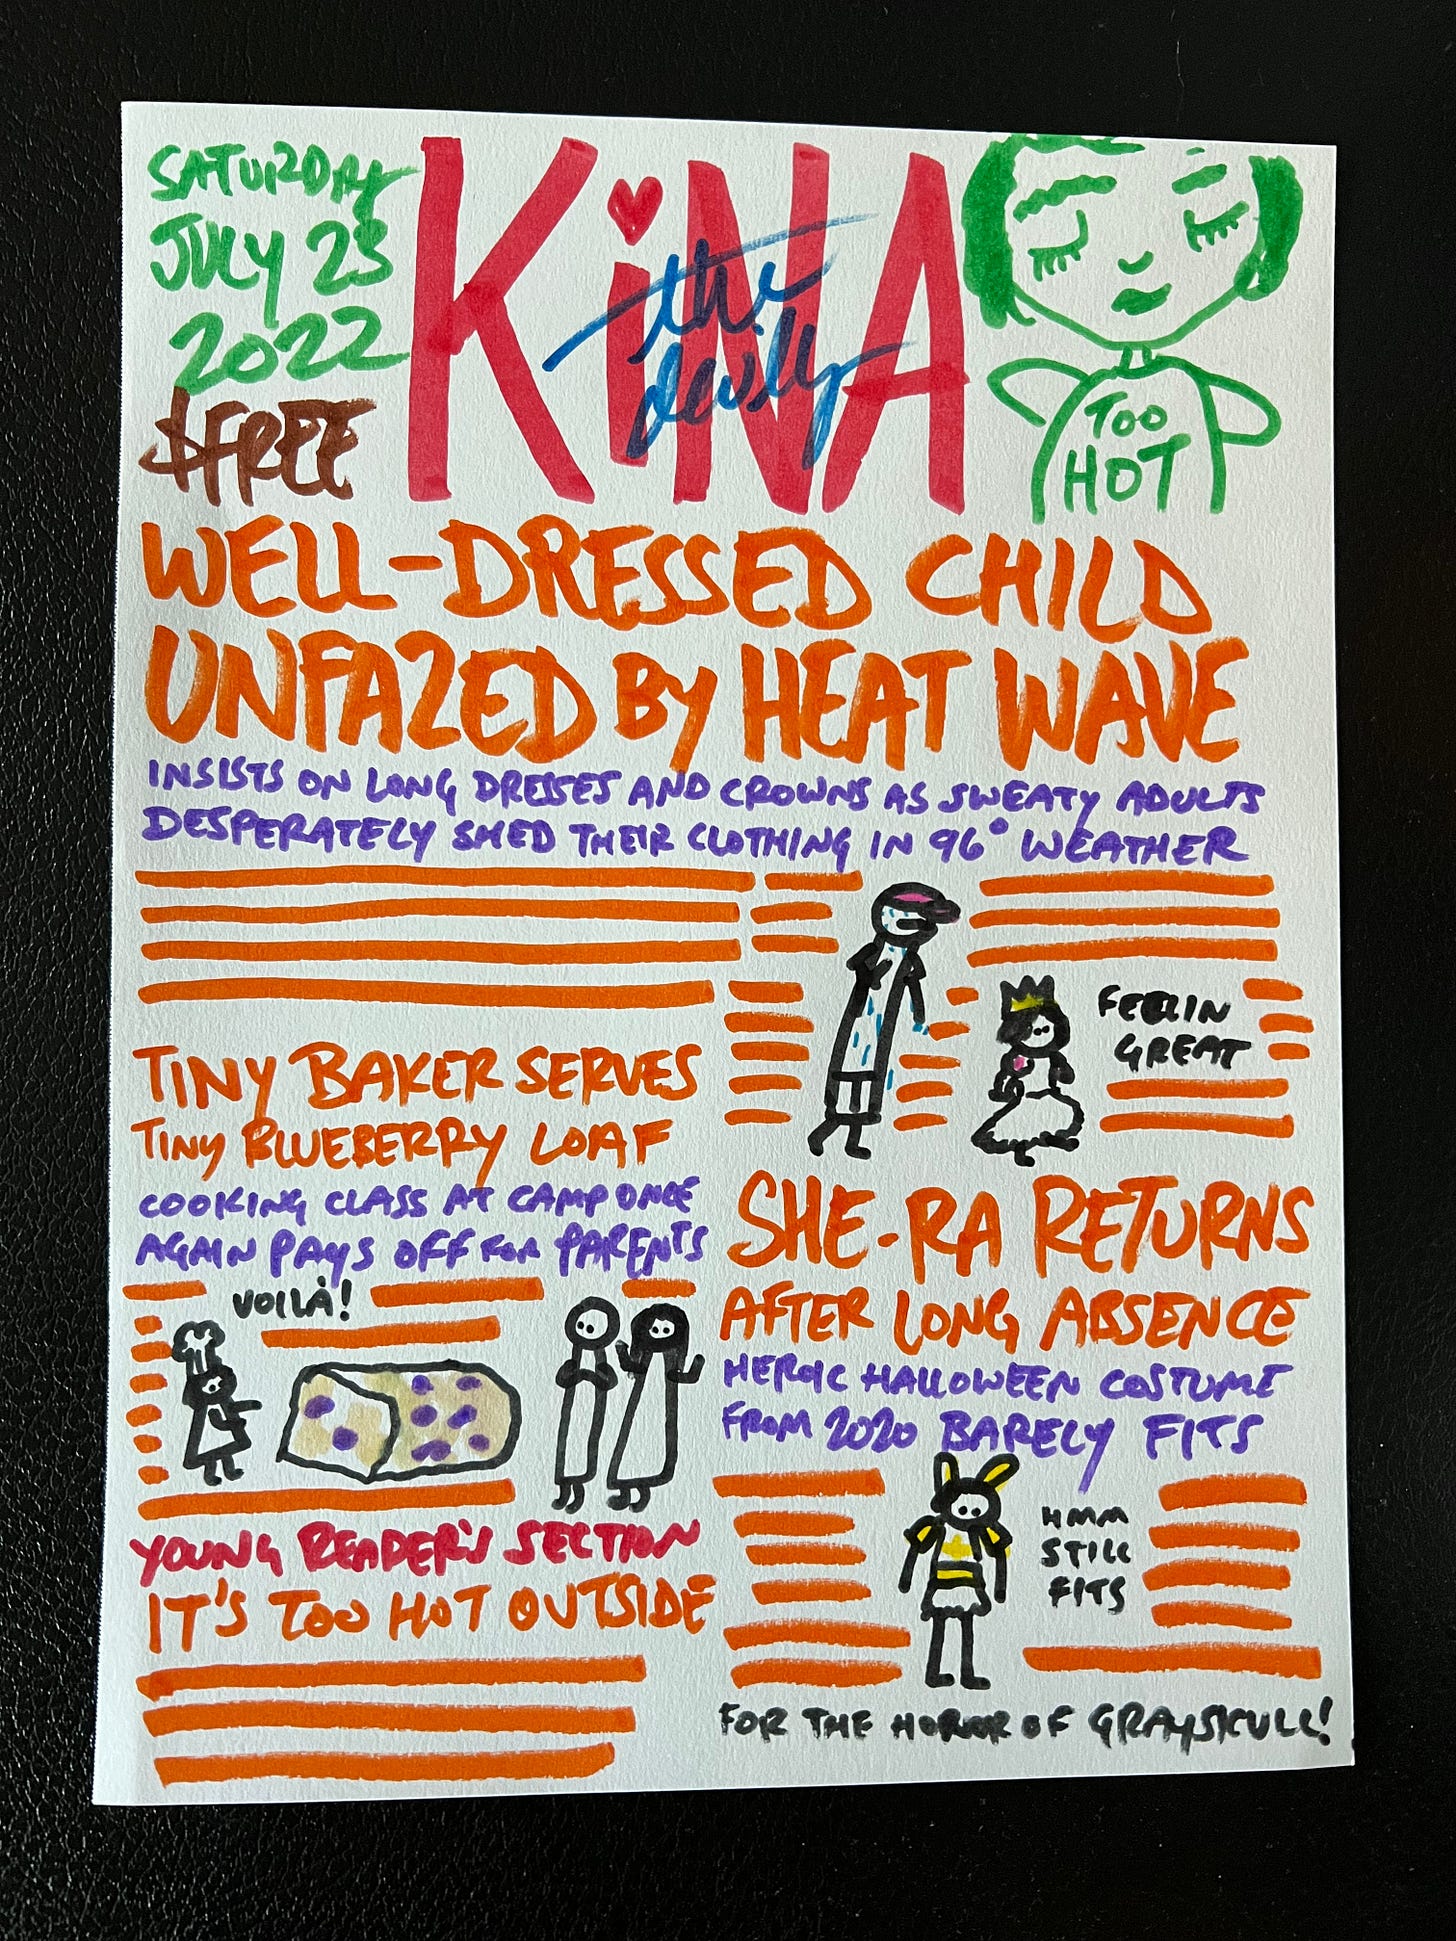 SATURDAY
JULY 23
2022
$FREE
KiNA
the daily
TOO
HOT
WELL-DRESSED CHILD
UNFAZED BY HEAT WAVE
INSISTS ON LONG DRESSES AND CROWNS AS SWEATY ADULTS
DESPERATELY SHED THEIR CLOTHING IN 96° WEATHER
FEELIN
GREAT
TINY BAKER SERVES
TINY BLUEBERRY LOAF
COOKING CLASS AT CAMP ONCE
AGAIN PAYS OFF FOR PARENTS
VOILÀ!
SHE-RA RETURNS
AFTER LONG ABSENCE
HEROIC HALLOWEEN COSTUME
FROM 2020 BARELY FITS
HMM
STILL
FITS
FOR THE HONOR OF GRAYSKULL!
YOUNG READER'S SECTION
IT'S TOO HOT OUTSIDE